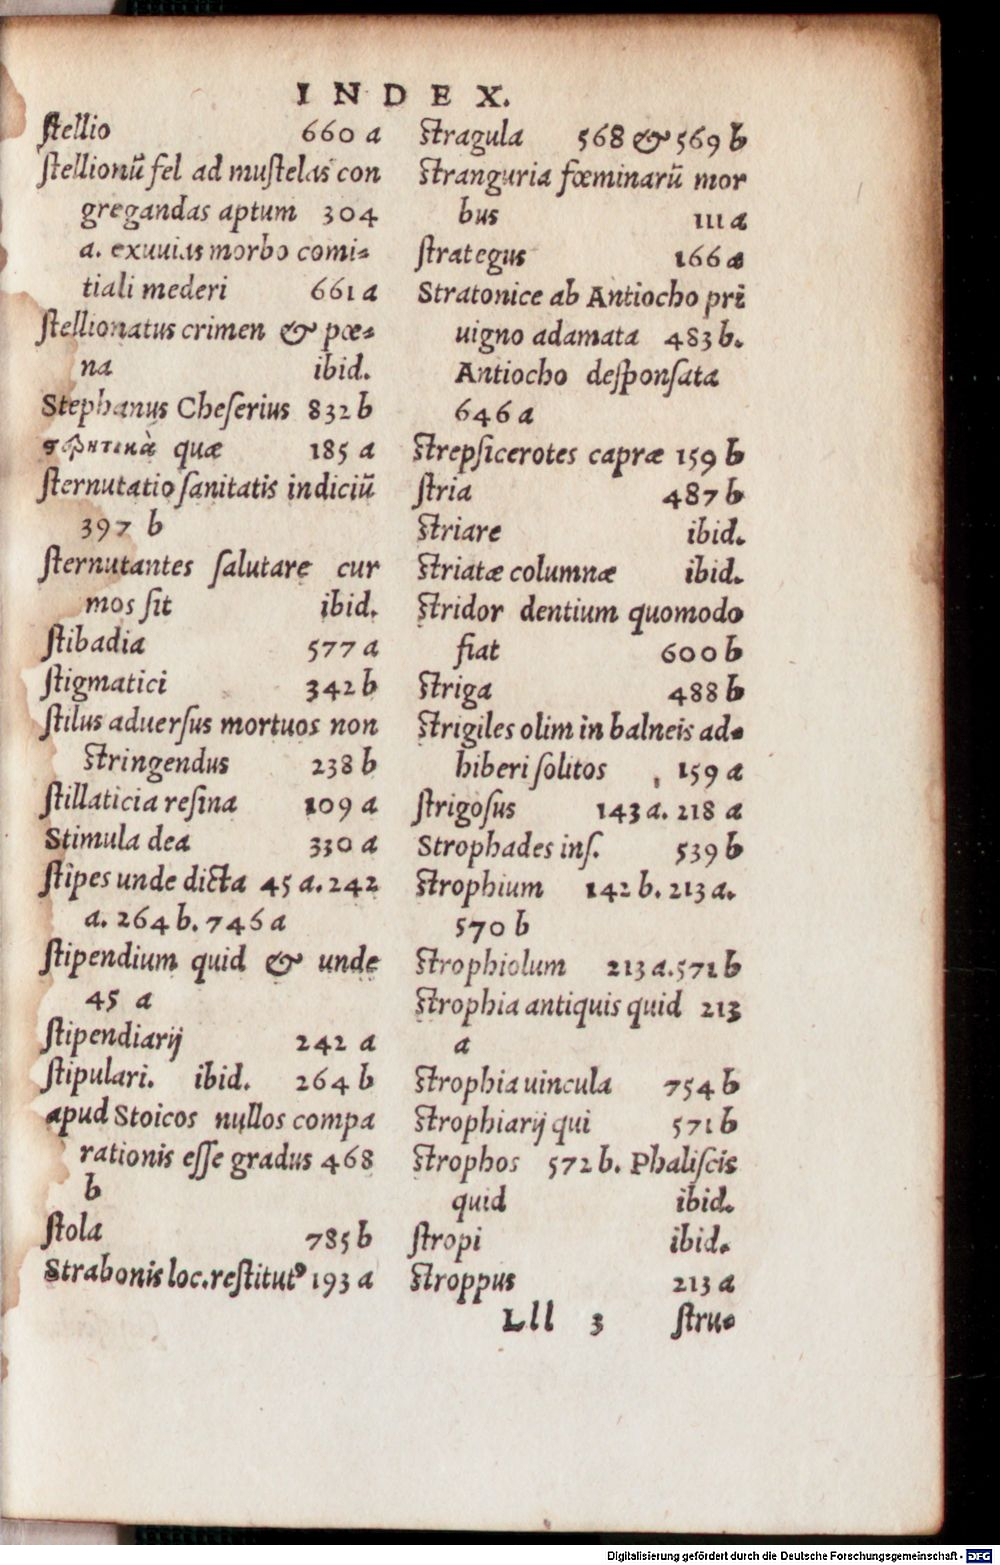 INDEX.
stellio 660 a
stellionũ fel ad mustelas con
gregandas aptum 304
a. exuuias morbo comi-
tiali mederi 661 a
stellionatus crimen & pœ-
na ibid.
Stephanus Cheserius 832 b
quæ 185 a
sternutatio sanitatis indiciũ
397 b
sternutantes salutare cur
mos sit ibid.
stibadia 577 a
stigmatici 342 b
stilus aduersus mortuos non
stringendus 238 b
stillaticia resina 109 a
Stimula dea 330 a
stipes unde dicta 45 a. 242
a. 264 b. 746 a
stipendium quid & unde
45 a
stipendiarij 242 a
stipulari. ibid. 264 b
apud Stoicos nullos compa
rationis esse gradus 468
b
stola 785 b
Strabonis loc. restitutꝰ 193 a
stragula 568 & 569 b
stranguria fœminarũ mor
bus 111 a
strategus 166 a
Stratonice ab Antiocho pri
uigno adamata 483 b.
Antiocho desponsata
646 a
strepsicerotes capræ 159 b
stria 487 b
striare ibid.
striatæ columnæ ibid.
stridor dentium quomodo
fiat 600 b
striga 488 b
strigiles olim in balneis ad-
hiberi solitos 159 a
strigosus 143 a. 218 a
Strophades ins. 539 b
strophium 142 b. 213 a.
570 b
strophiolum 213 a. 571 b
strophia antiquis quid 213
a
strophia uincula 754 b
strophiarij qui 571 b
strophos 572 b. Phaliscis
quid ibid.
stropi ibid.
stroppus 213 a
Lll 3 stru-
Digitalisierung gefördert durch die Deutsche Forschungsgemeinschaft - DFG